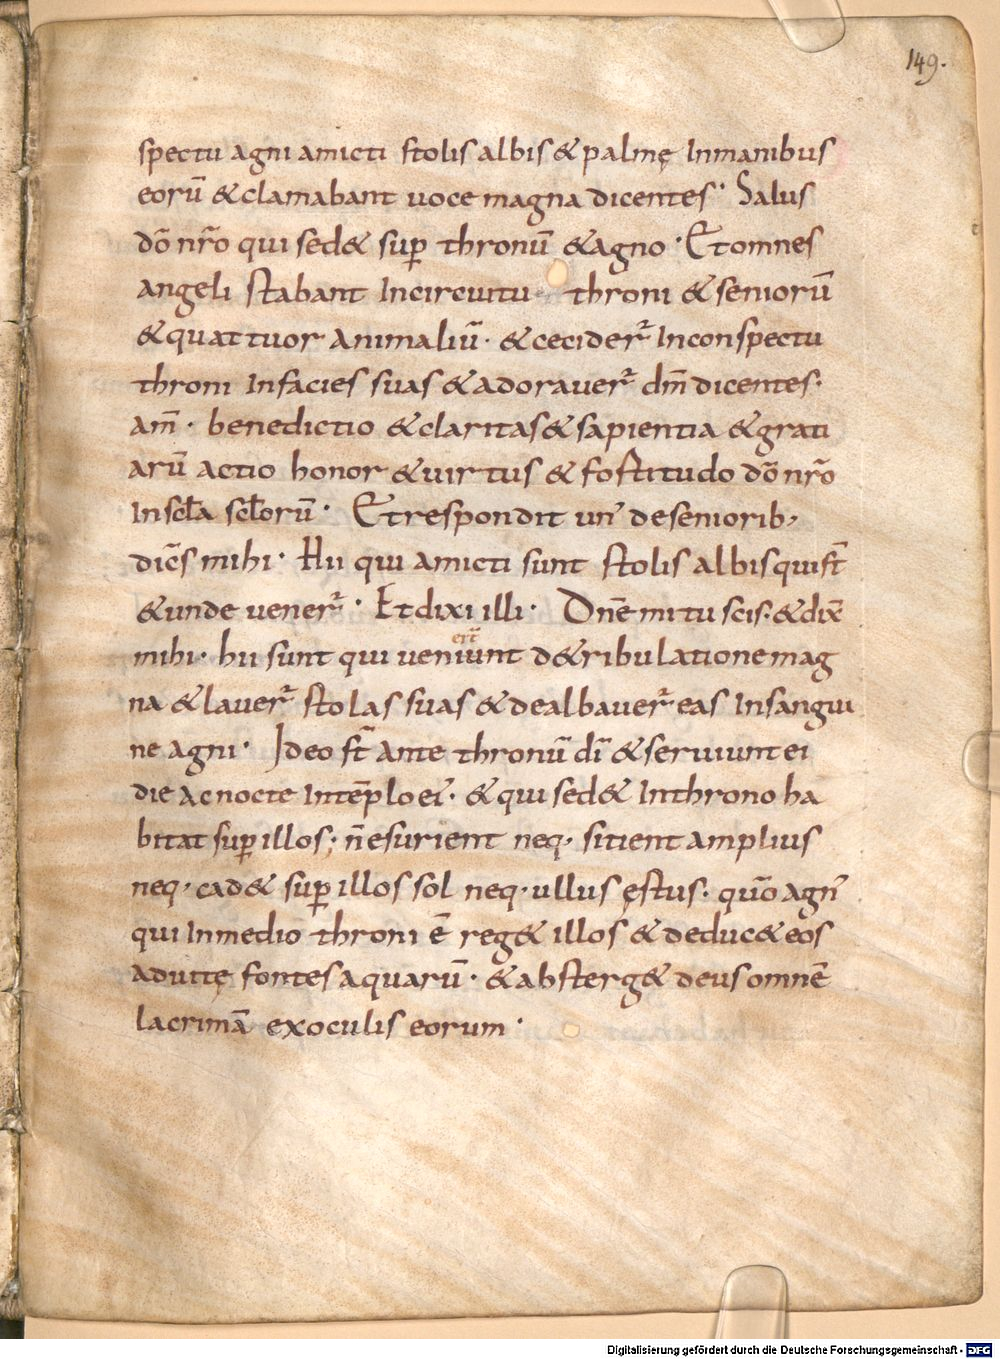 149.
spectu agni amicti stolis albis & palmę Inmanibus
eorū & clamabant voce magna dicentes· Salus
dō nr̄o qui sed& sup̱ thronū & agno· Et omnes
angeli stabant Incircuitu throni & seniorū
& quattuor animaliū· & cecider̄ Inconspectu
throni Infacies suas & adoraver̄ dm̄ dicentes·
am̄· benedictio & claritas & sapientia & grati
arū actio honor & virtus & fostitudo dō nr̄o
Inscl̄a scl̄orū· Et respondit un' deseniorib,
dic̄s mihi· Hii qui amicti sunt stolis albis qui st̄
& unde uener̄· Et dixi illi· Dn̄e mi tu scis· & dix̄
er̄t
mihi· hii sunt qui ueniunt d& ribulatione mag
na & lauer̄ stolas suas & dealbauer̄ eas Insangui
ne agni· Ideo st̄ ante thronū dī & seruiunt ei
die ac nocte Intēplo ei'· & qui sed& Inthrono ha
bitat sup̱ illos; n̄ esurient neq, sitient amplius
neq, cad& sup̱ illos sol neq, ullus ęstus· quō agn'
qui Inmedio throni ē reg& illos & deduc& eos
aduitę fontes aquarū· & absterg& deus omnē
lacrimā exoculis eorum·
Digitalisierung gefördert durch die Deutsche Forschungsgemeinschaft - DFG